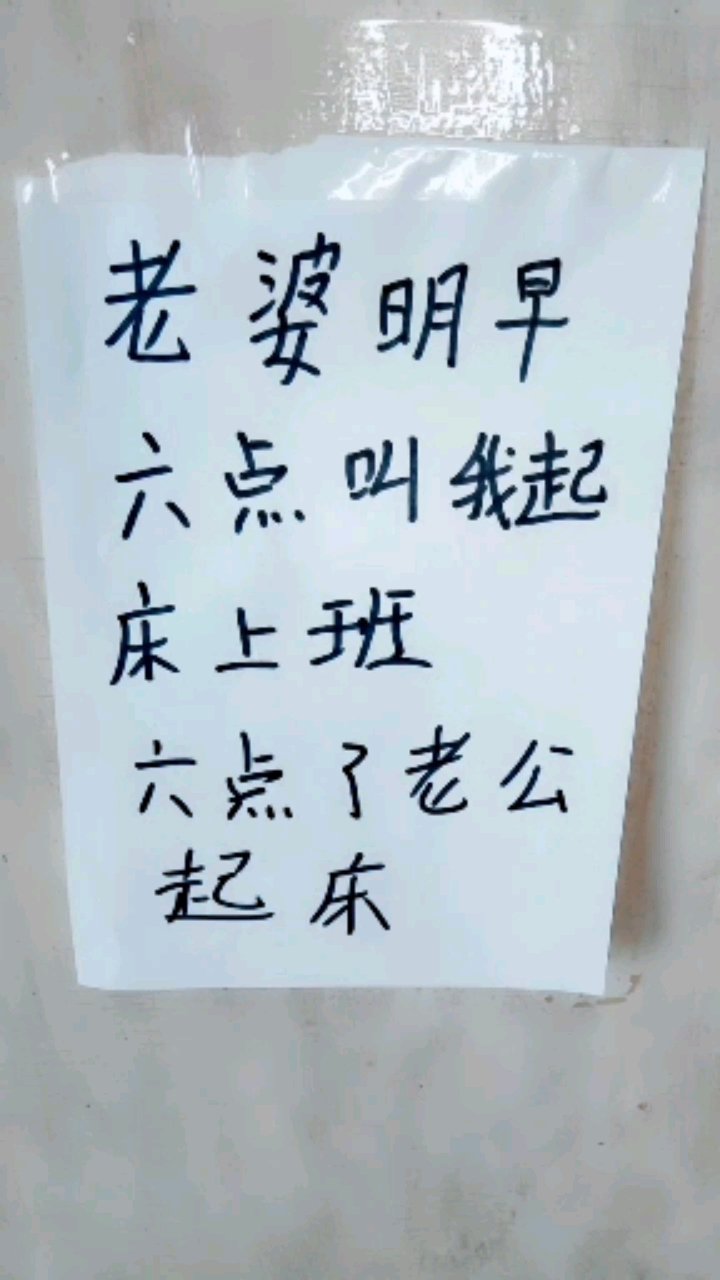 老婆明早
六点叫我起
床上班
六点了老公
起床